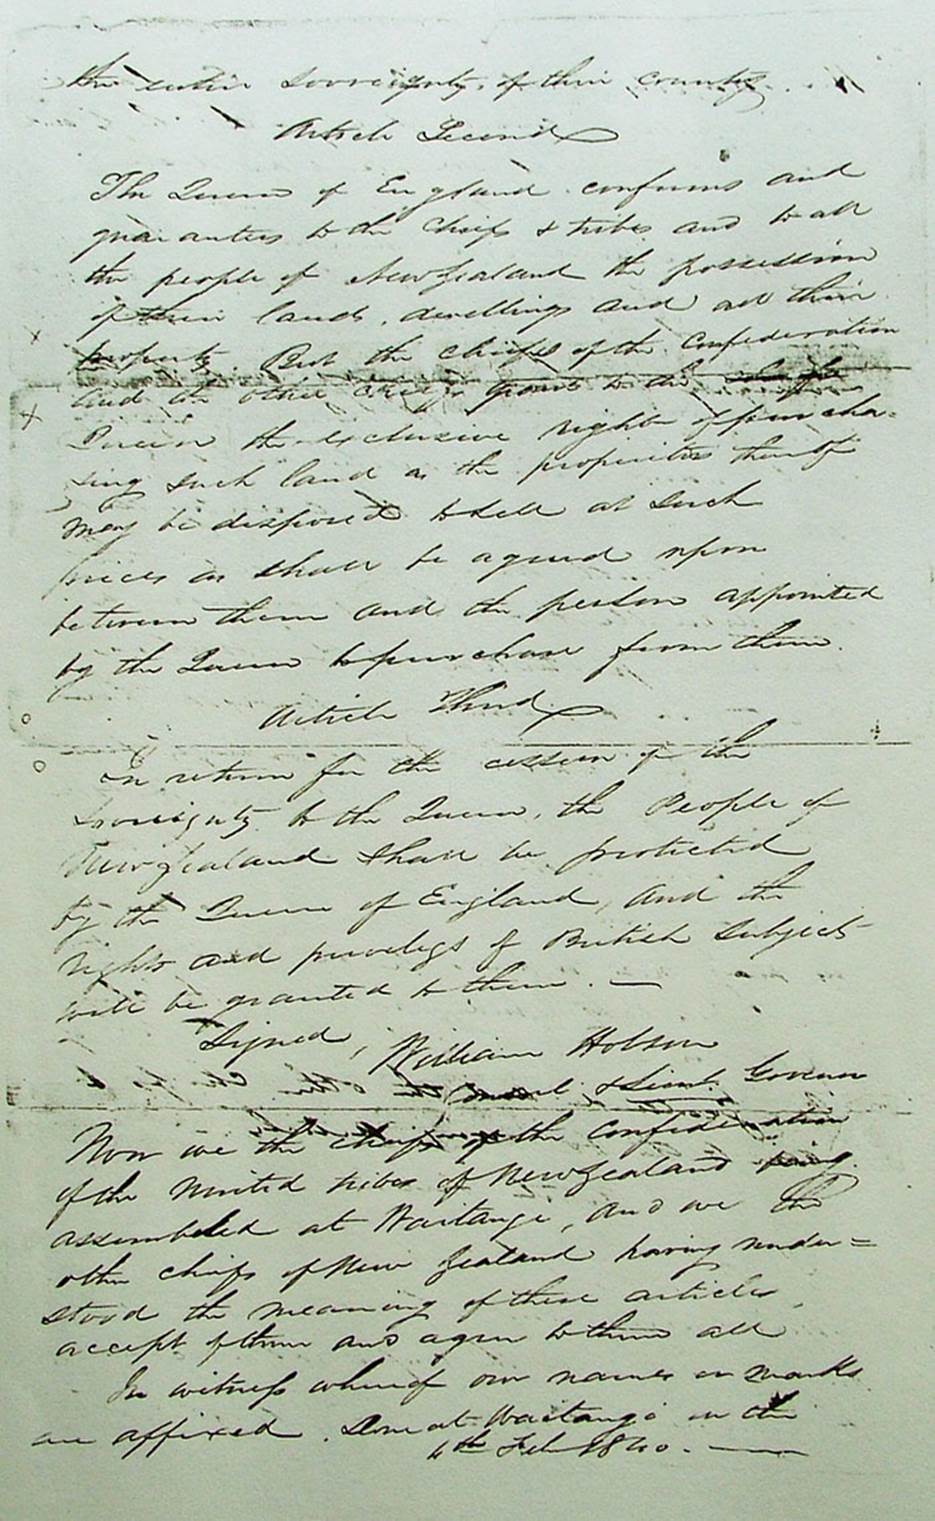 the entire sovreignty of their country.
Article Second
The Queen of England confirms and
guarantees to the chiefs & tribes and to all
the people of New Zealand the possession
of their lands, dwellings and all their
property. But the chiefs of the Confederation
and the other chiefs grant to the
Queen the exclusive right of purcha-
sing such land as the proprietors thereof
may be disposed to sell at such
prices as shall be agreed upon
between them and the person appointed
by the Queen to purchase from them.
Article Third
In return for the cession of the
sovreignty to the Queen, the People of
New Zealand shall be protected
by the Queen of England, and the
rights and privelegs of British subjects
will be granted to them. —
Signed, William Hobson
Consul & Lieut. Governor
Now we the chiefs of the Confederation
of the United tribes of New Zealand being
assembled at Waitangi, and we the
other chiefs of New Zealand having under=
stood the meaning of these articles,
accept of them and agree to them all
In witness whereof our names or marks
are affixed. Done at Waitangi on the
4th Feb 1840. —